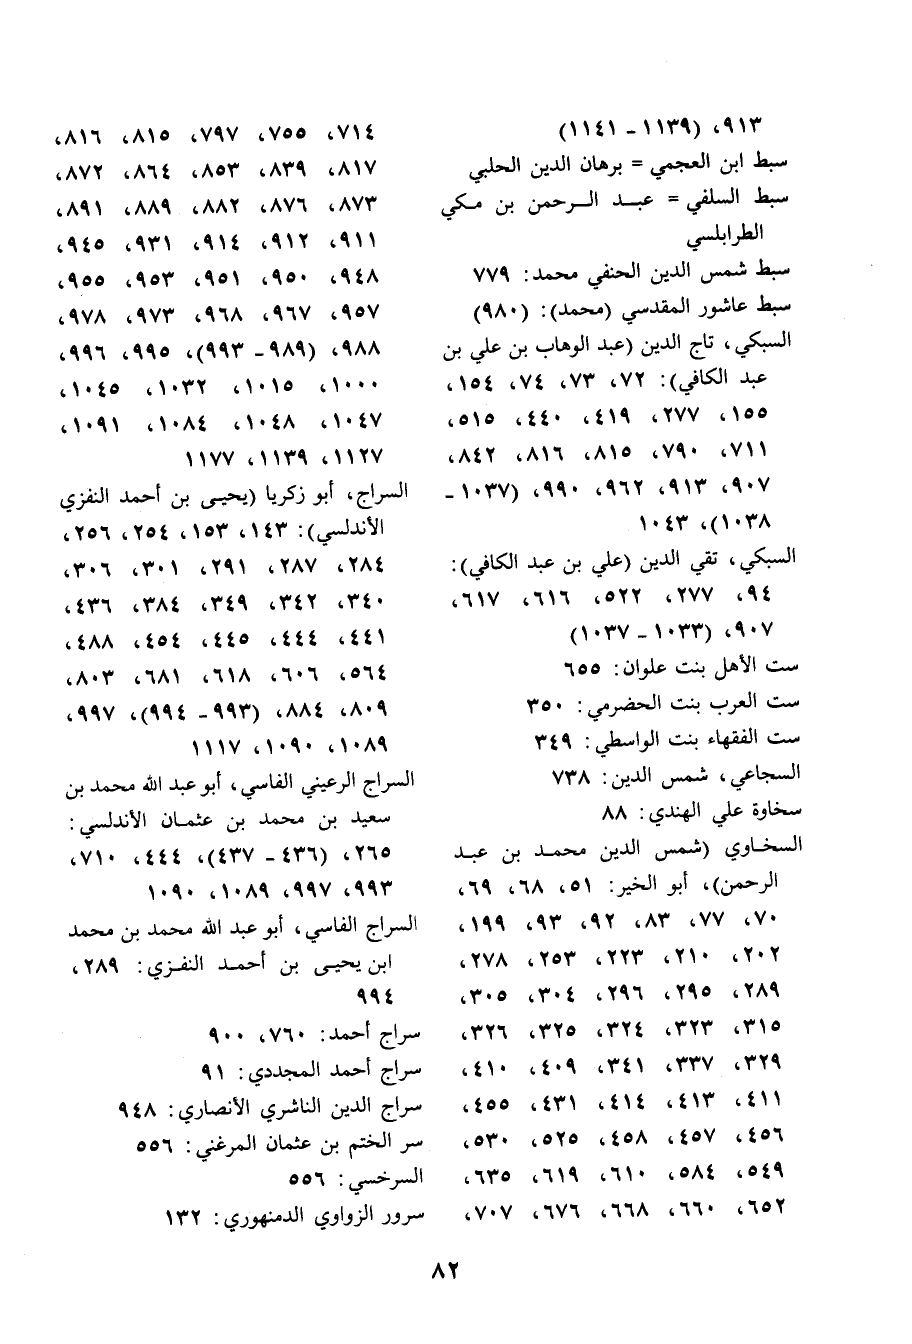 ٩١٣، (١١٣٩ - ١١٤١)
سبط ابن العجمي = برهان الدين الحلبي
سبط السلفي = عبد الرحمن بن مكي
الطرابلسي
سبط شمس الدين الحنفي محمد: ٧٧٩
سبط عاشور المقدسي (محمد): (٩٨٠)
السبكي، تاج الدين (عبد الوهاب بن علي بن
عبد الكافي): ٧٢، ٧٣، ٧٤، ١٥٤،
١٥٥، ٢٧٧، ٤١٩، ٤٤٠، ٥١٥،
٧١١، ٧٩٠، ٨١٥، ٨١٦، ٨٤٢،
٩٠٧، ٩١٣، ٩٦٢، ٩٩٠، (١٠٣٧ -
١٠٣٨)، ١٠٤٣
السبكي، تقي الدين (علي بن عبد الكافي):
٩٤، ٢٧٧، ٥٢٢، ٦١٦، ٦١٧،
٩٠٧، (١٠٣٣ - ١٠٣٧)
ست الأهل بنت علوان: ٦٥٥
ست العرب بنت الحضرمي: ٣٥٠
ست الفقهاء بنت الواسطي: ٣٤٩
السجاعي، شمس الدين: ٧٣٨
سخاوة علي الهندي: ٨٨
السخاوي (شمس الدين محمد بن عبد
الرحمن)، أبو الخير: ٥١، ٦٨، ٦٩،
٧٠، ٧٧، ٨٣، ٩٢، ٩٣، ١٩٩،
٢٠٢، ٢١٠، ٢٢٣، ٢٥٣، ٢٧٨،
٢٨٩، ٢٩٥، ٢٩٦، ٣٠٤، ٣٠٥،
٣١٥، ٣٢٣، ٣٢٤، ٣٢٥، ٣٢٦،
٣٢٩، ٣٣٧، ٣٤١، ٤٠٩، ٤١٠،
٤١١، ٤١٣، ٤١٤، ٤٣١، ٤٥٥،
٤٥٦، ٤٥٧، ٤٥٨، ٥٢٥، ٥٣٠،
٥٤٩، ٥٨٤، ٦١٠، ٦١٩، ٦٣٥،
٦٥٢، ٦٦٠، ٦٦٨، ٦٧٦، ٧٠٧،
٧١٤، ٧٥٥، ٧٩٧، ٨١٥، ٨١٦،
٨١٧، ٨٣٩، ٨٥٣، ٨٦٤، ٨٧٢،
٨٧٣، ٨٧٦، ٨٨٢، ٨٨٩، ٨٩١،
٩١١، ٩١٢، ٩١٤، ٩٣١، ٩٤٥،
٩٤٨، ٩٥٠، ٩٥١، ٩٥٣، ٩٥٥،
٩٥٧، ٩٦٧، ٩٦٨، ٩٧٣، ٩٧٨،
٩٨٨، (٩٨٩ - ٩٩٣)، ٩٩٥، ٩٩٦،
١٠٠٠، ١٠١٥، ١٠٣٢، ١٠٤٥،
١٠٤٧، ١٠٤٨، ١٠٨٤، ١٠٩١،
١١٢٧، ١١٣٩، ١١٧٧
السراج، أبو زكريا (يحيى بن أحمد النفزي
الأندلسي): ١٤٣، ١٥٣، ٢٥٤، ٢٥٦،
٢٨٤، ٢٨٧، ٢٩١، ٣٠١، ٣٠٦،
٣٤٠، ٣٤٢، ٣٤٩، ٣٨٤، ٤٣٦،
٤٤١، ٤٤٤، ٤٤٥، ٤٥٤، ٤٨٨،
٥٦٤، ٦٠٦، ٦١٨، ٦٨١، ٨٠٣،
٨٠٩، ٨٨٤، (٩٩٣ - ٩٩٤)، ٩٩٧،
١٠٨٩، ١٠٩٠، ١١١٧
السراج الرعيني الفاسي، أبو عبد الله محمد بن
سعيد بن محمد بن عثمان الأندلسي:
٢٦٥، (٤٣٦ - ٤٣٧)، ٤٤٤، ٧١٠،
٩٩٣، ٩٩٧، ١٠٨٩، ١٠٩٠
السراج الفاسي، أبو عبد الله محمد بن محمد
ابن يحيى بن أحمد النفزي: ٢٨٩،
٩٩٤
سراج أحمد: ٧٦٠، ٩٠٠
سراج أحمد المجددي: ٩١
سراج الدين الناشري الأنصاري: ٩٤٨
سر الختم بن عثمان المرغني: ٥٥٦
السرخسي: ٥٥٦
سرور الزواوي الدمنهوري: ١٣٢
٨٢